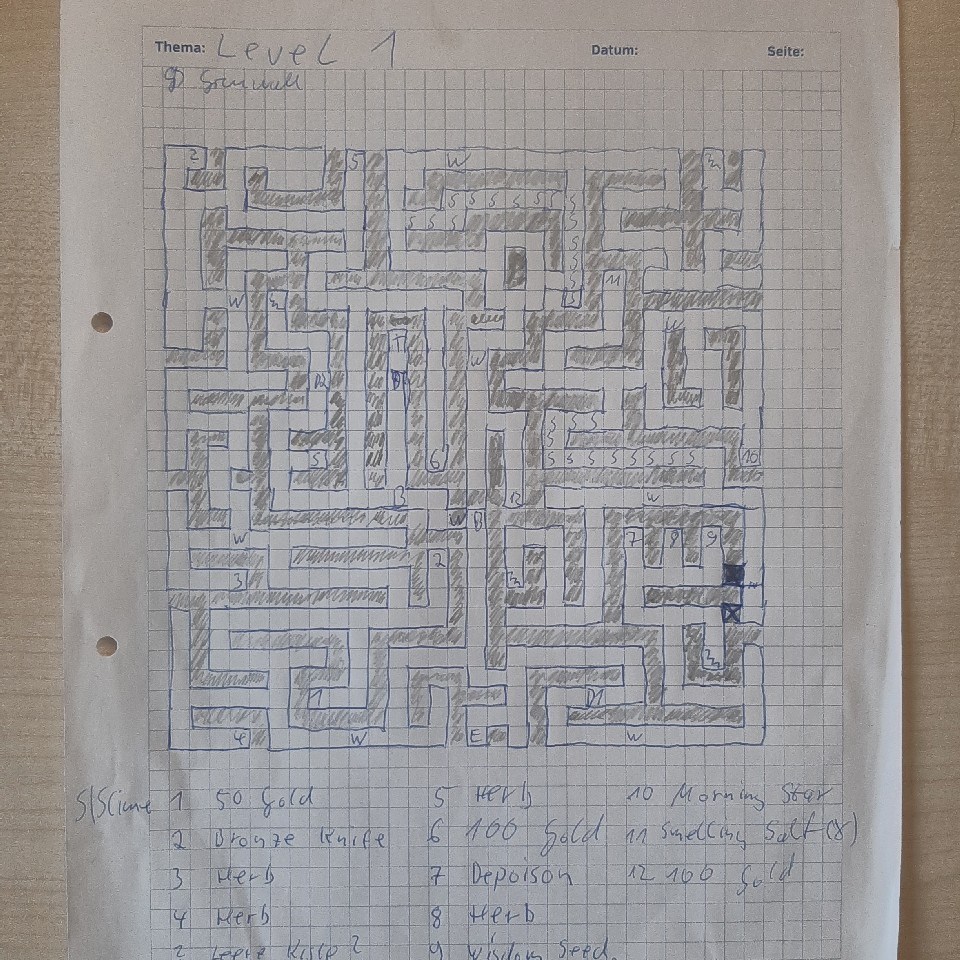 Thema: Level 1 Datum: Seite:
2 5 W
S S S S S S S
S S S S
S
S
W 11
S
W
T
W
D2 D1
S S S
S S
5 6 S S S S S S S S 10
3 12 W
W B
W 7 8 9
2
3
1 D1
4 W E W
S/Slime 1 50 Gold 5 Herb 10 Morning Star
2 Bronze Knife 6 100 Gold 11 Smelling Salt (8)
3 Herb 7 Depoison 12 100 Gold
4 Herb 8 Herb
? Leere Kiste? 9 Wisdom Seed